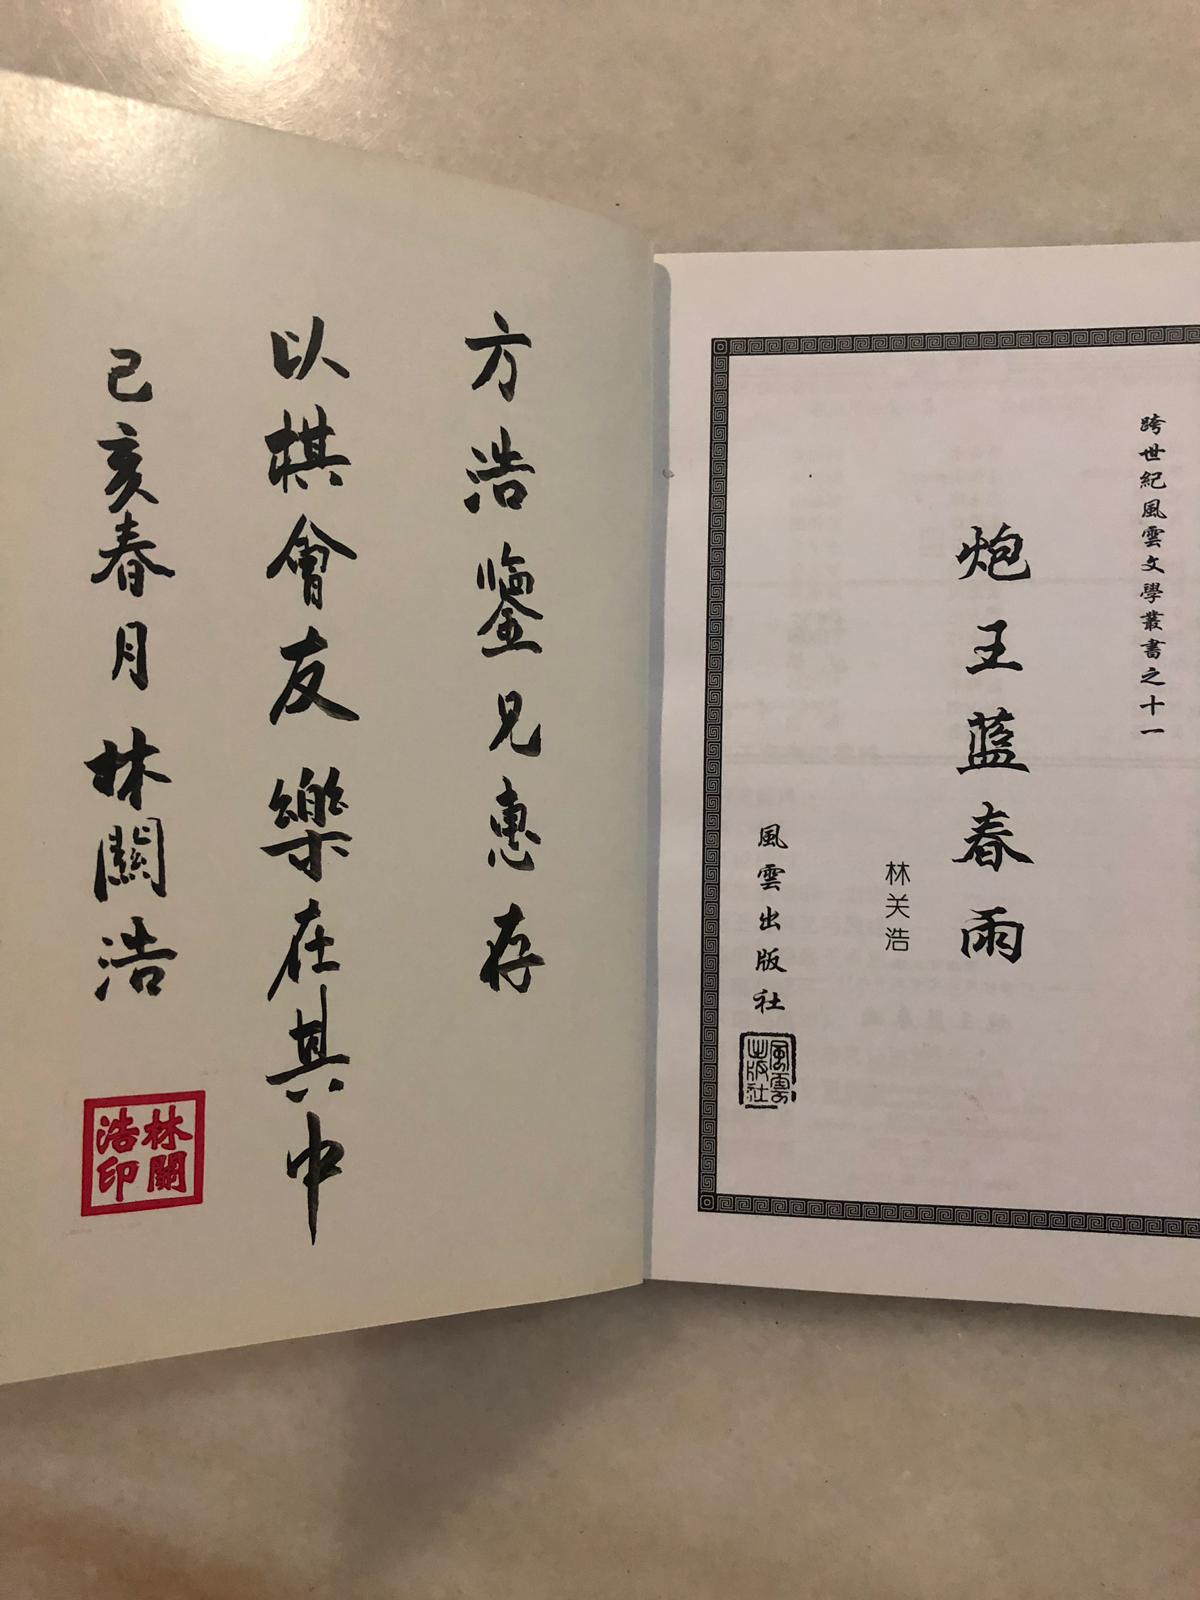 方浩鑒兄惠存
以棋會友樂在其中
己亥春月林關浩
林關
浩印
跨世紀風雲文學叢書之十一
炮王蓝春雨
林关浩
風雲出版社
風雲
出版社